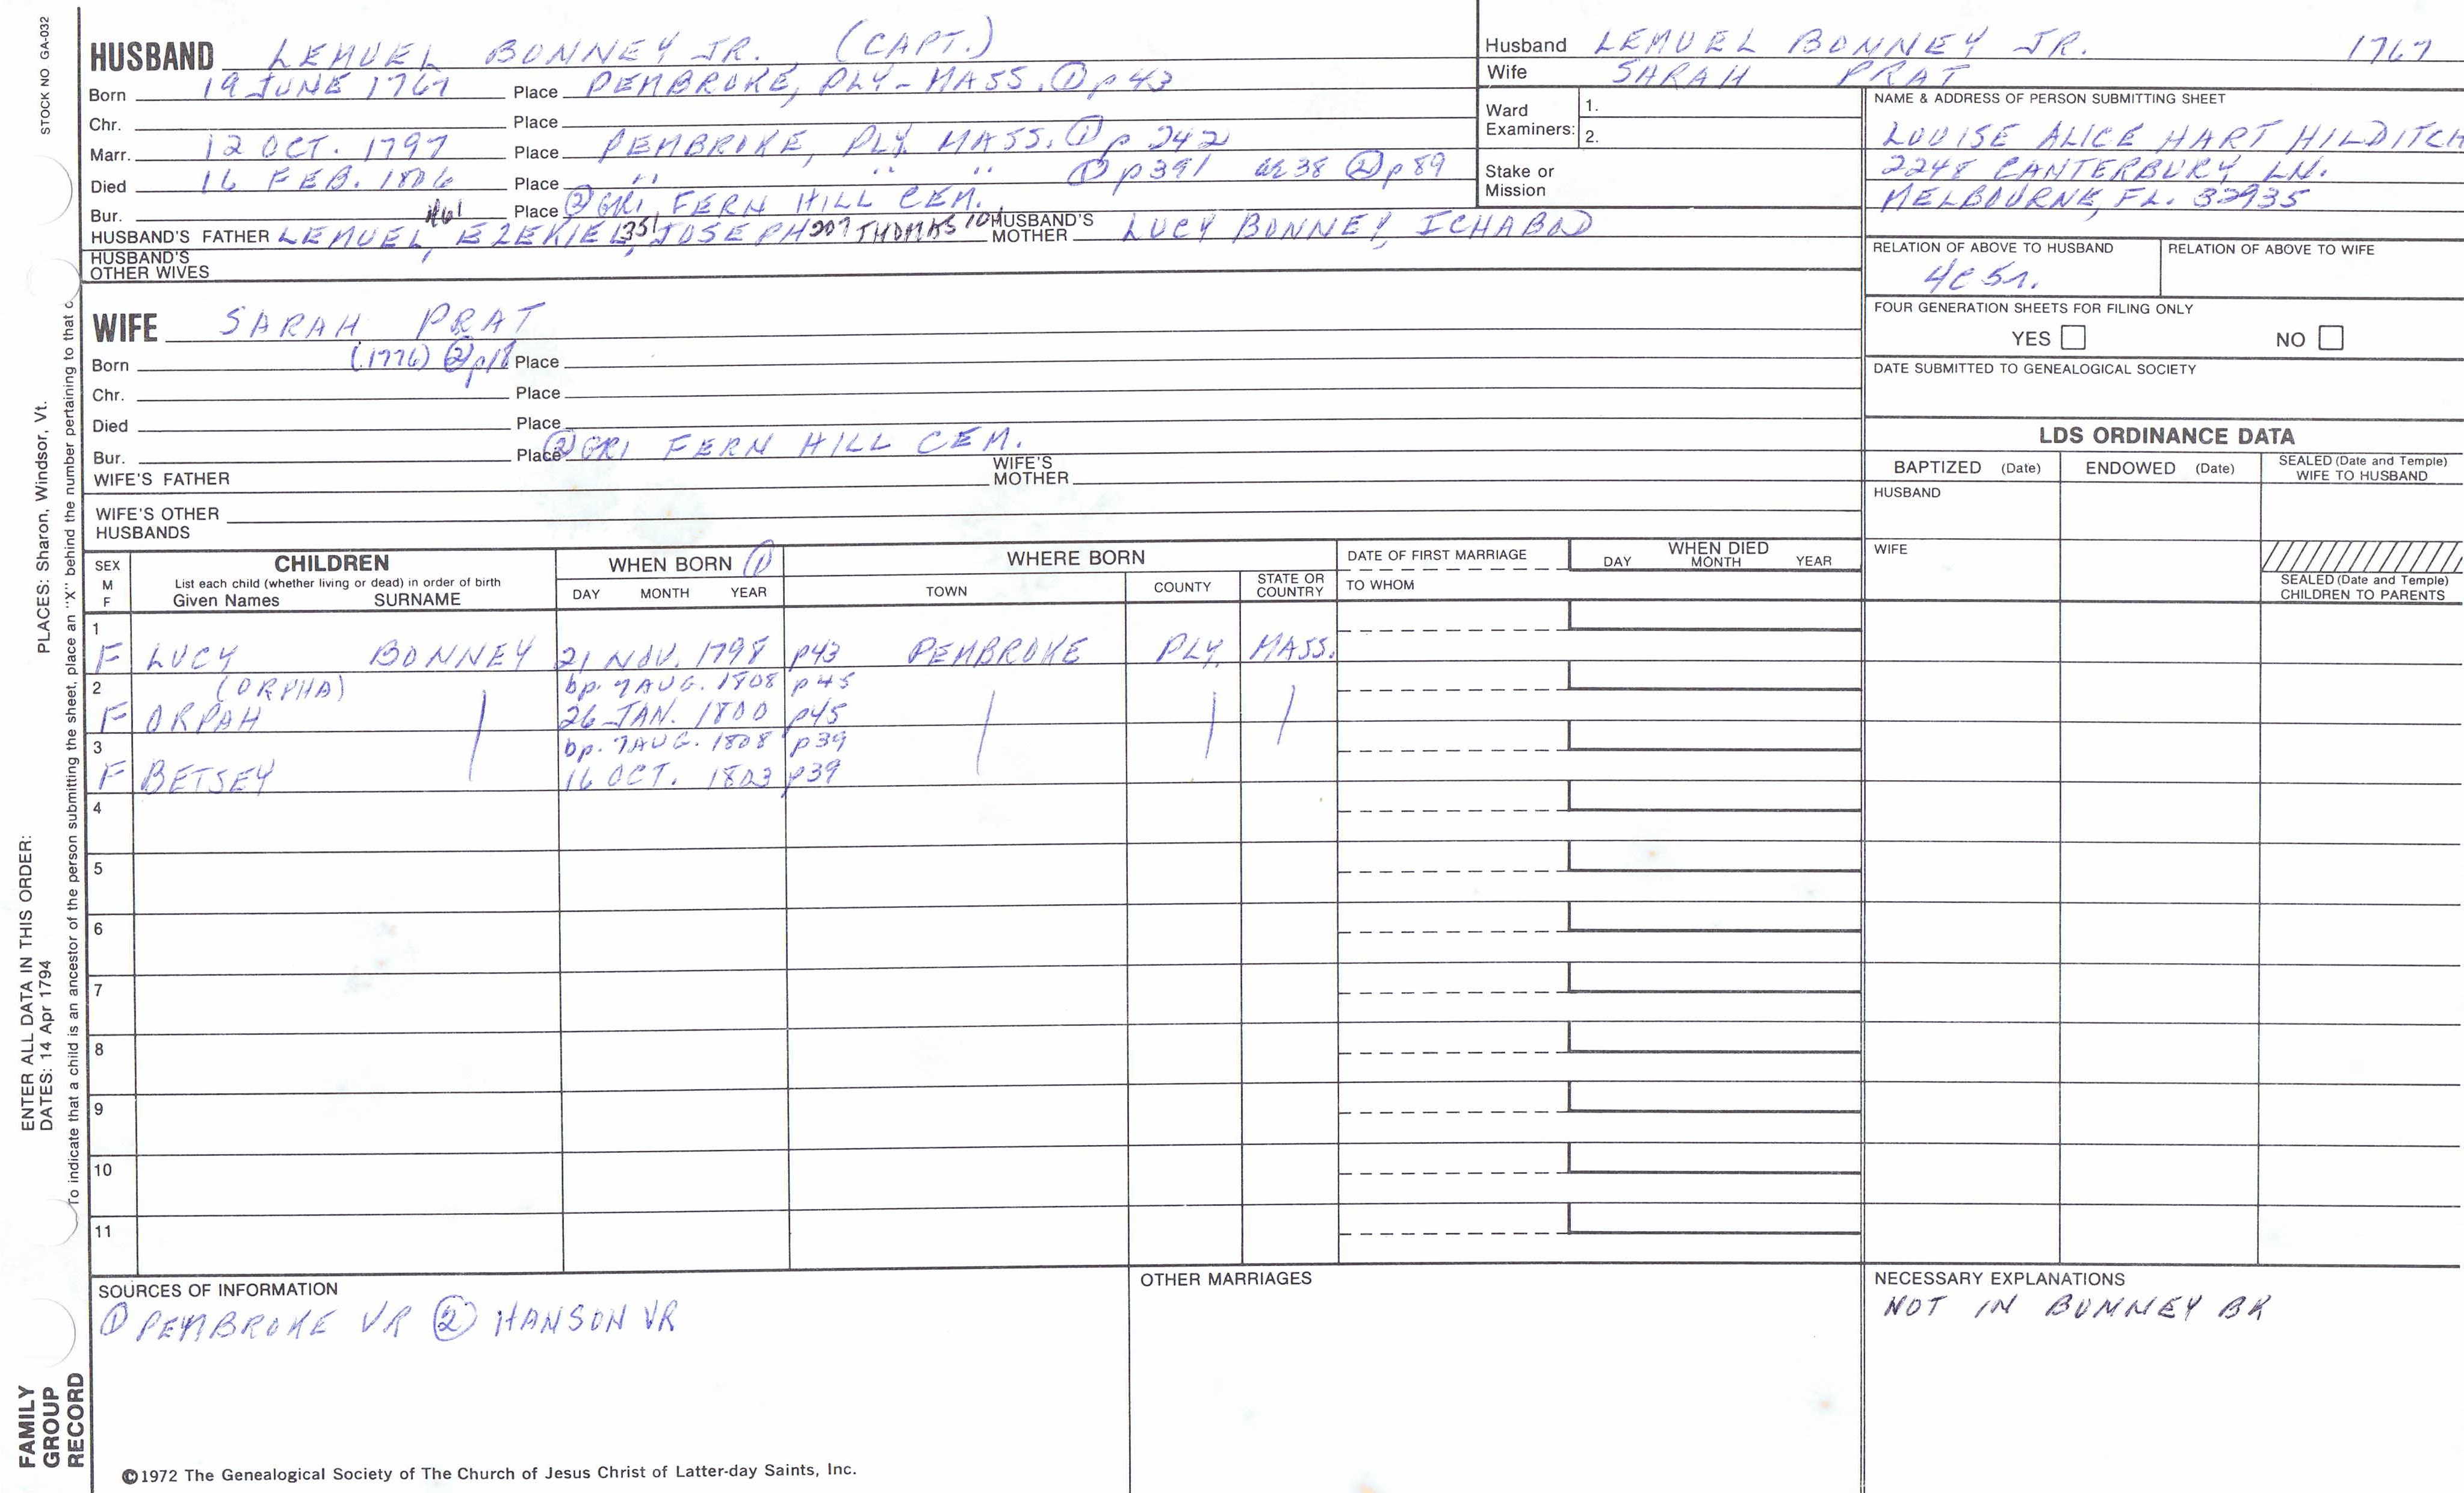 STOCK NO GA-032
HUSBAND LEMUEL BONNEY JR. (CAPT.)
Born 19 JUNE 1767 Place PEMBROKE, PLY-MASS. ① p 43
Chr. Place
Marr. 12 OCT. 1797 Place PEMBROKE, PLY. MASS. ① p 242
Died 16 FEB. 1806 Place " " " ① p 391 38 ② p 89
Bur. Place ② GR1 FERN HILL CEM.
HUSBAND'S FATHER LEMUEL, 461 EZEKIEL, 351 JOSEPH 207 THOMAS 10 HUSBAND'S MOTHER LUCY BONNEY, ICHABOD
HUSBAND'S OTHER WIVES
Husband LEMUEL BONNEY JR. 1767
Wife SARAH PRAT
Ward Examiners: 1.
2.
Stake or Mission
NAME & ADDRESS OF PERSON SUBMITTING SHEET
LOUISE ALICE HART HILDITCH
2248 CANTERBURY LN.
MELBOURNE, FL. 32935
RELATION OF ABOVE TO HUSBAND RELATION OF ABOVE TO WIFE
4c 5r.
FOUR GENERATION SHEETS FOR FILING ONLY
YES NO
DATE SUBMITTED TO GENEALOGICAL SOCIETY
WIFE SARAH PRAT
Born (1776) ② p18 Place
Chr. Place
Died Place
Bur. Place ② GR1 FERN HILL CEM.
WIFE'S FATHER WIFE'S MOTHER
WIFE'S OTHER HUSBANDS
LDS ORDINANCE DATA
BAPTIZED (Date) ENDOWED (Date) SEALED (Date and Temple) WIFE TO HUSBAND
HUSBAND
WIFE
SEALED (Date and Temple) CHILDREN TO PARENTS
SEX M F CHILDREN List each child (whether living or dead) in order of birth Given Names SURNAME
WHEN BORN ① DAY MONTH YEAR
WHERE BORN TOWN COUNTY STATE OR COUNTRY
DATE OF FIRST MARRIAGE TO WHOM
WHEN DIED DAY MONTH YEAR
1
F LUCY BONNEY 21 NOV. 1798 p43 PEMBROKE PLY. MASS.
2 (ORPHA) bp. 7 AUG. 1808 p45
F ORPAH 26 JAN. 1800 p45
3 bp. 7 AUG. 1808 p39
F BETSEY 16 OCT. 1803 p39
4
5
6
7
8
9
10
11
SOURCES OF INFORMATION
① PEMBROKE VR ② HANSON VR
OTHER MARRIAGES
NECESSARY EXPLANATIONS
NOT IN BONNEY BK
©1972 The Genealogical Society of The Church of Jesus Christ of Latter-day Saints, Inc.
FAMILY GROUP RECORD
ENTER ALL DATA IN THIS ORDER:
DATES: 14 Apr 1794
PLACES: Sharon, Windsor, Vt.
To indicate that a child is an ancestor of the person submitting the sheet, place an "X" behind the number pertaining to that c